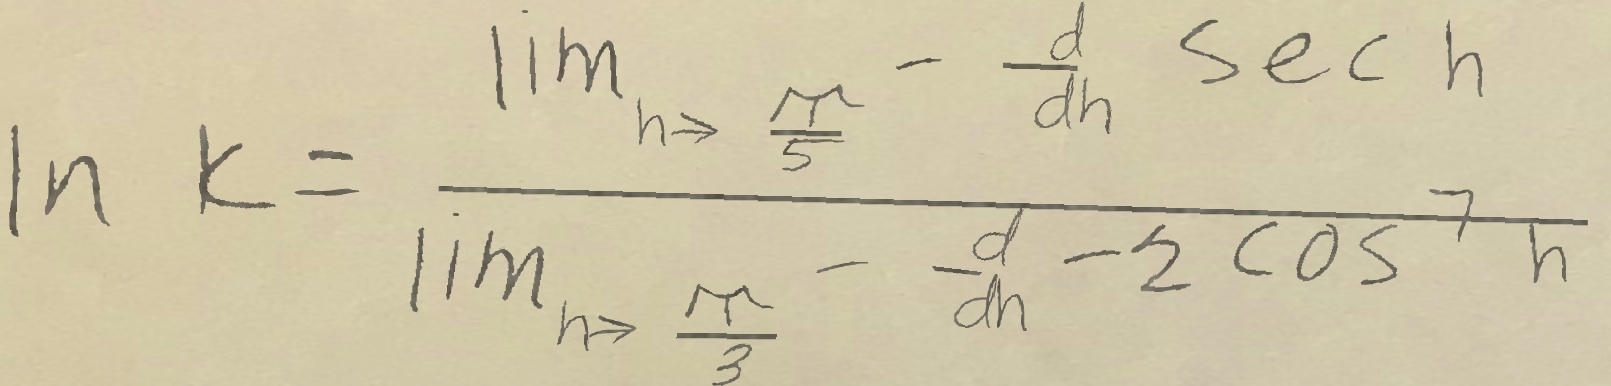 \ln k = \frac{\lim_{h \to \frac{\pi}{5}} - \frac{d}{dh} \sec h}{\lim_{h \to \frac{\pi}{3}} - \frac{d}{dh} - 2 \cos^7 h}